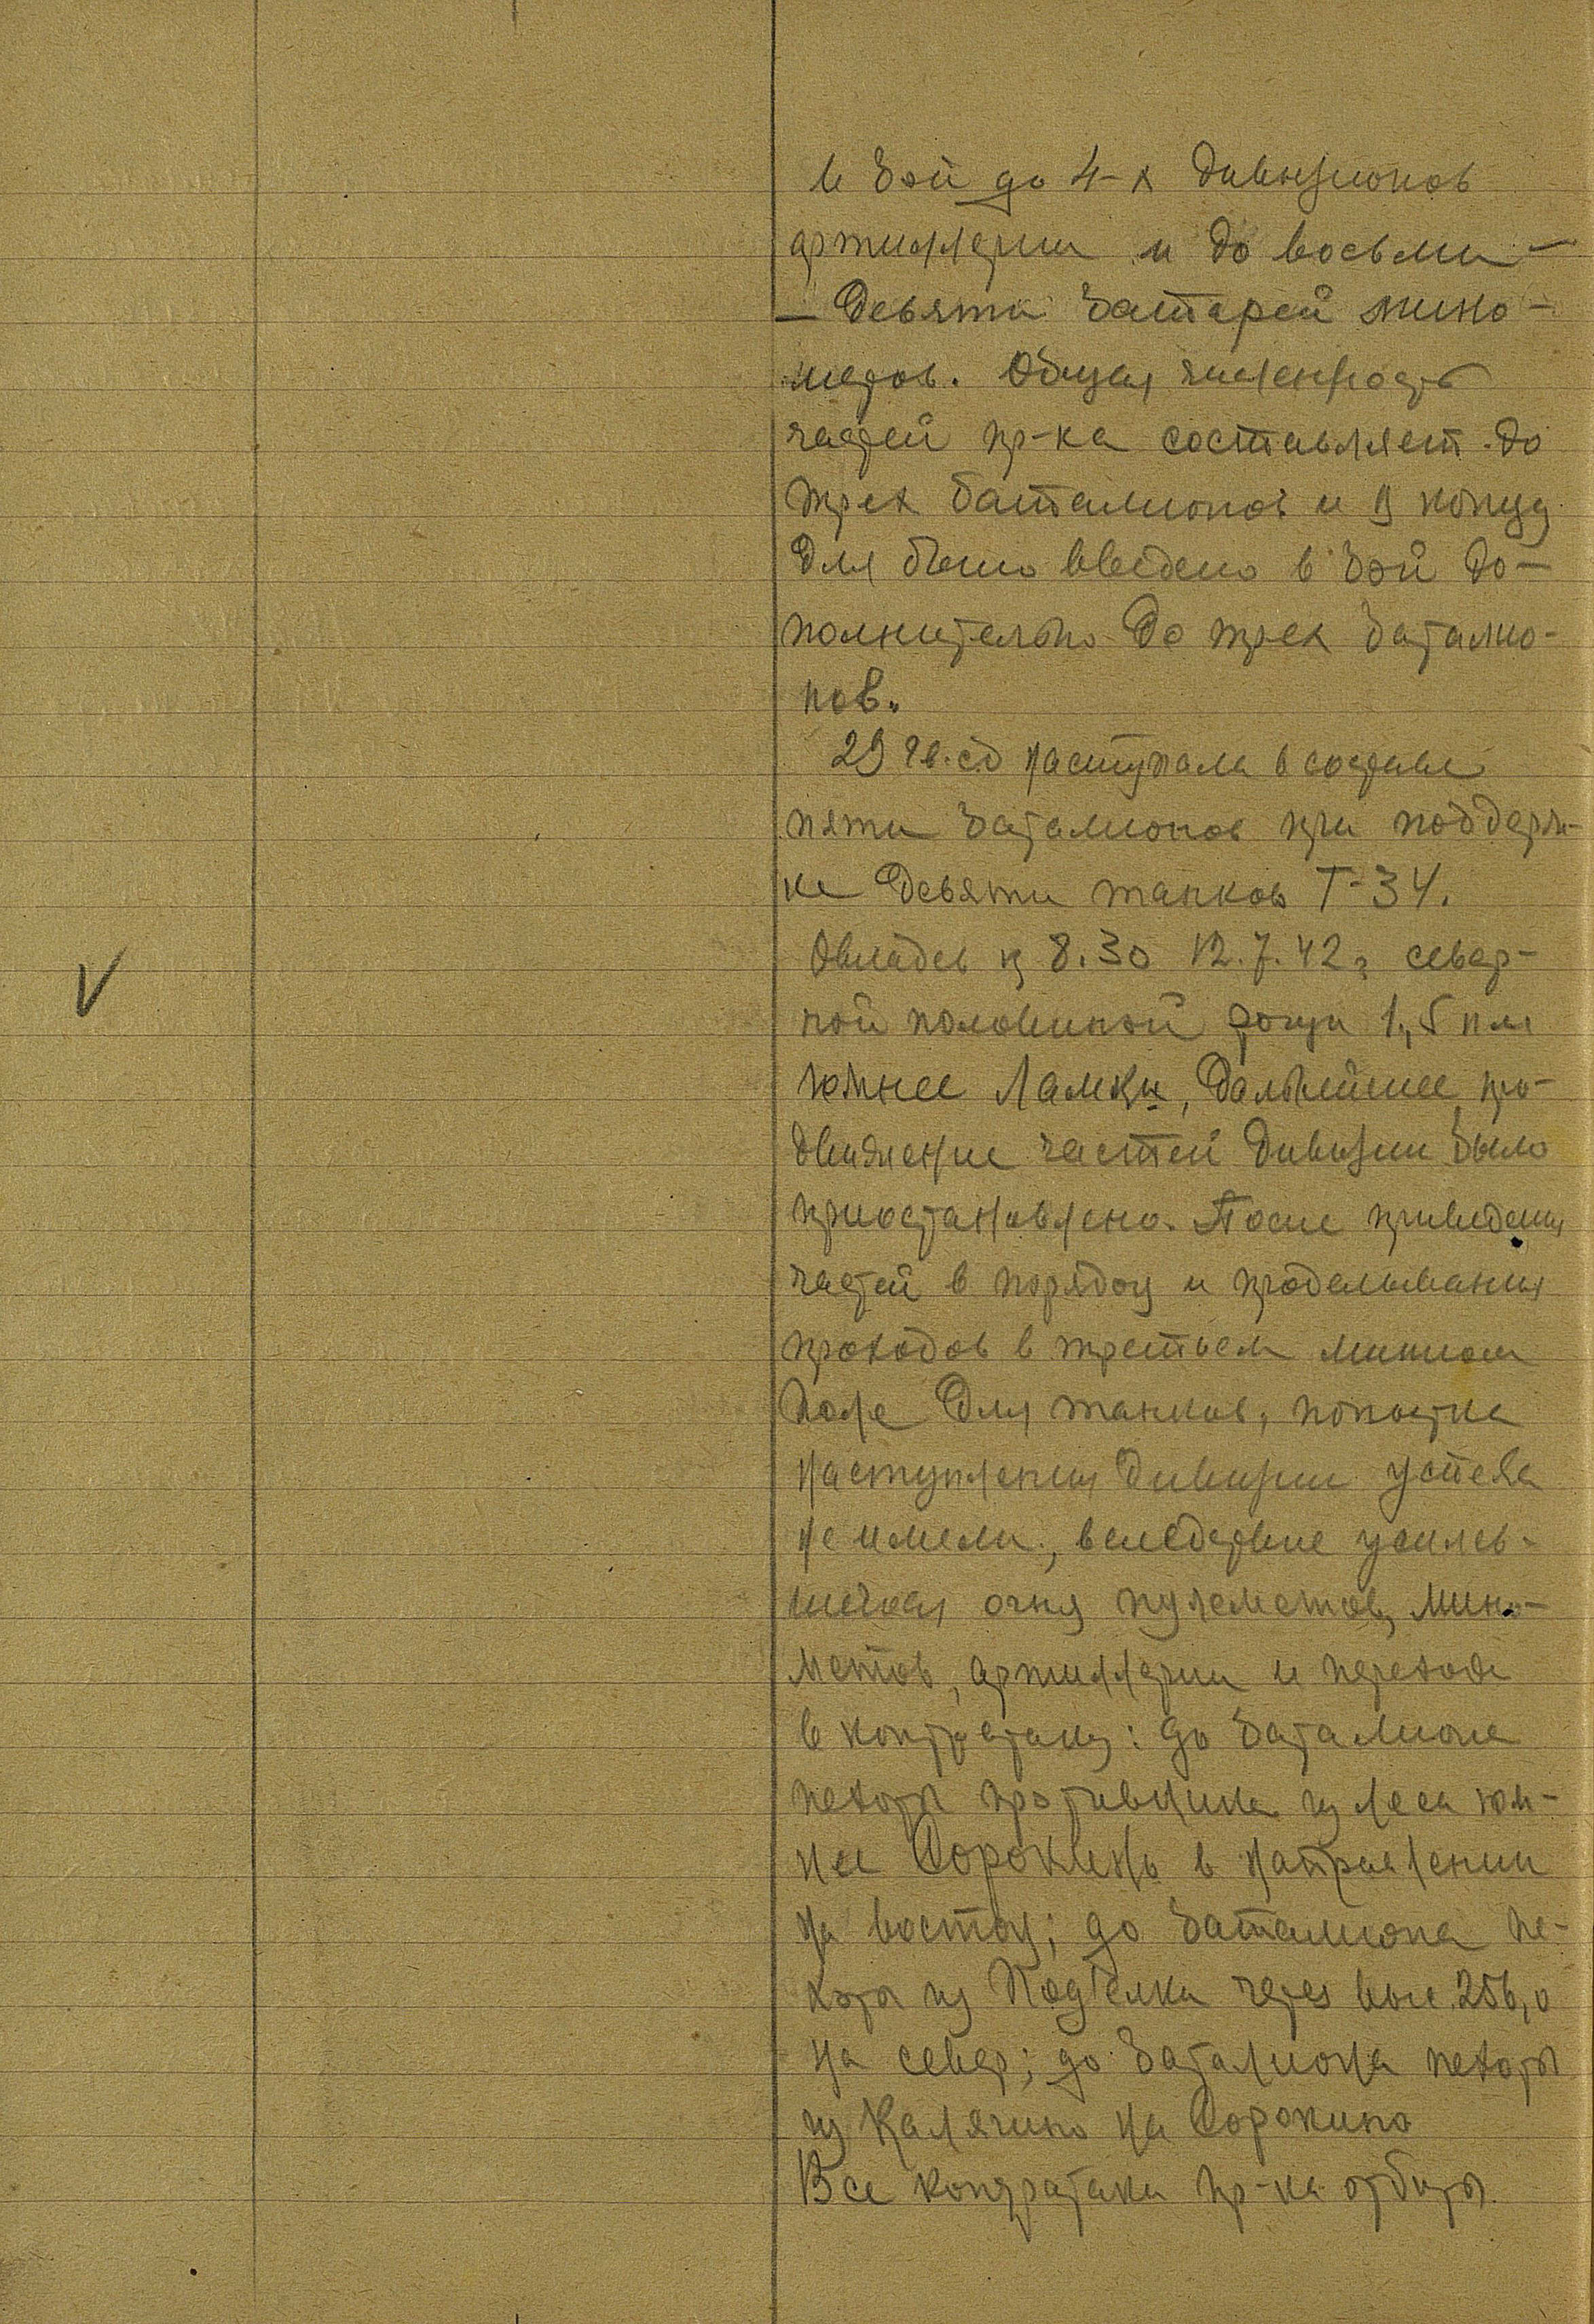 в бой до 4-х дивизионов
артиллерии и до восьми -
- девяти батарей мино-
метов. Общая численность
частей пр-ка составляет до
трех батталионов и к концу
дня было введено в бой до-
полнительно до трех баталио-
нов.
29 гв. сд наступала в составе
пяти баталионов при поддерж-
ке девяти танков Т-34.
Овладев к 8.30 12.7.42г север-
ной половиной рощи 1,5 км
южнее Ламки, дальнейшее про-
движение частей дивизии было
приостановлено. После приведения
частей в порядок и проделывания
проходов в третьем минном
поле для танков, попытка
наступления дивизии успеха
не имели, вследствие усилив-
шегося огня пулеметов, мино-
метов, артиллерии и перехода
в контратаку: до баталиона
пехоты противника из леса юж-
нее Сорокино в направлении
на восток; до батталиона пе-
хоты из Подъелки через выс. 256,0
на север; до баталиона пехоты
из Калягино на Сорокино
Все контратаки пр-ка отбиты.
V